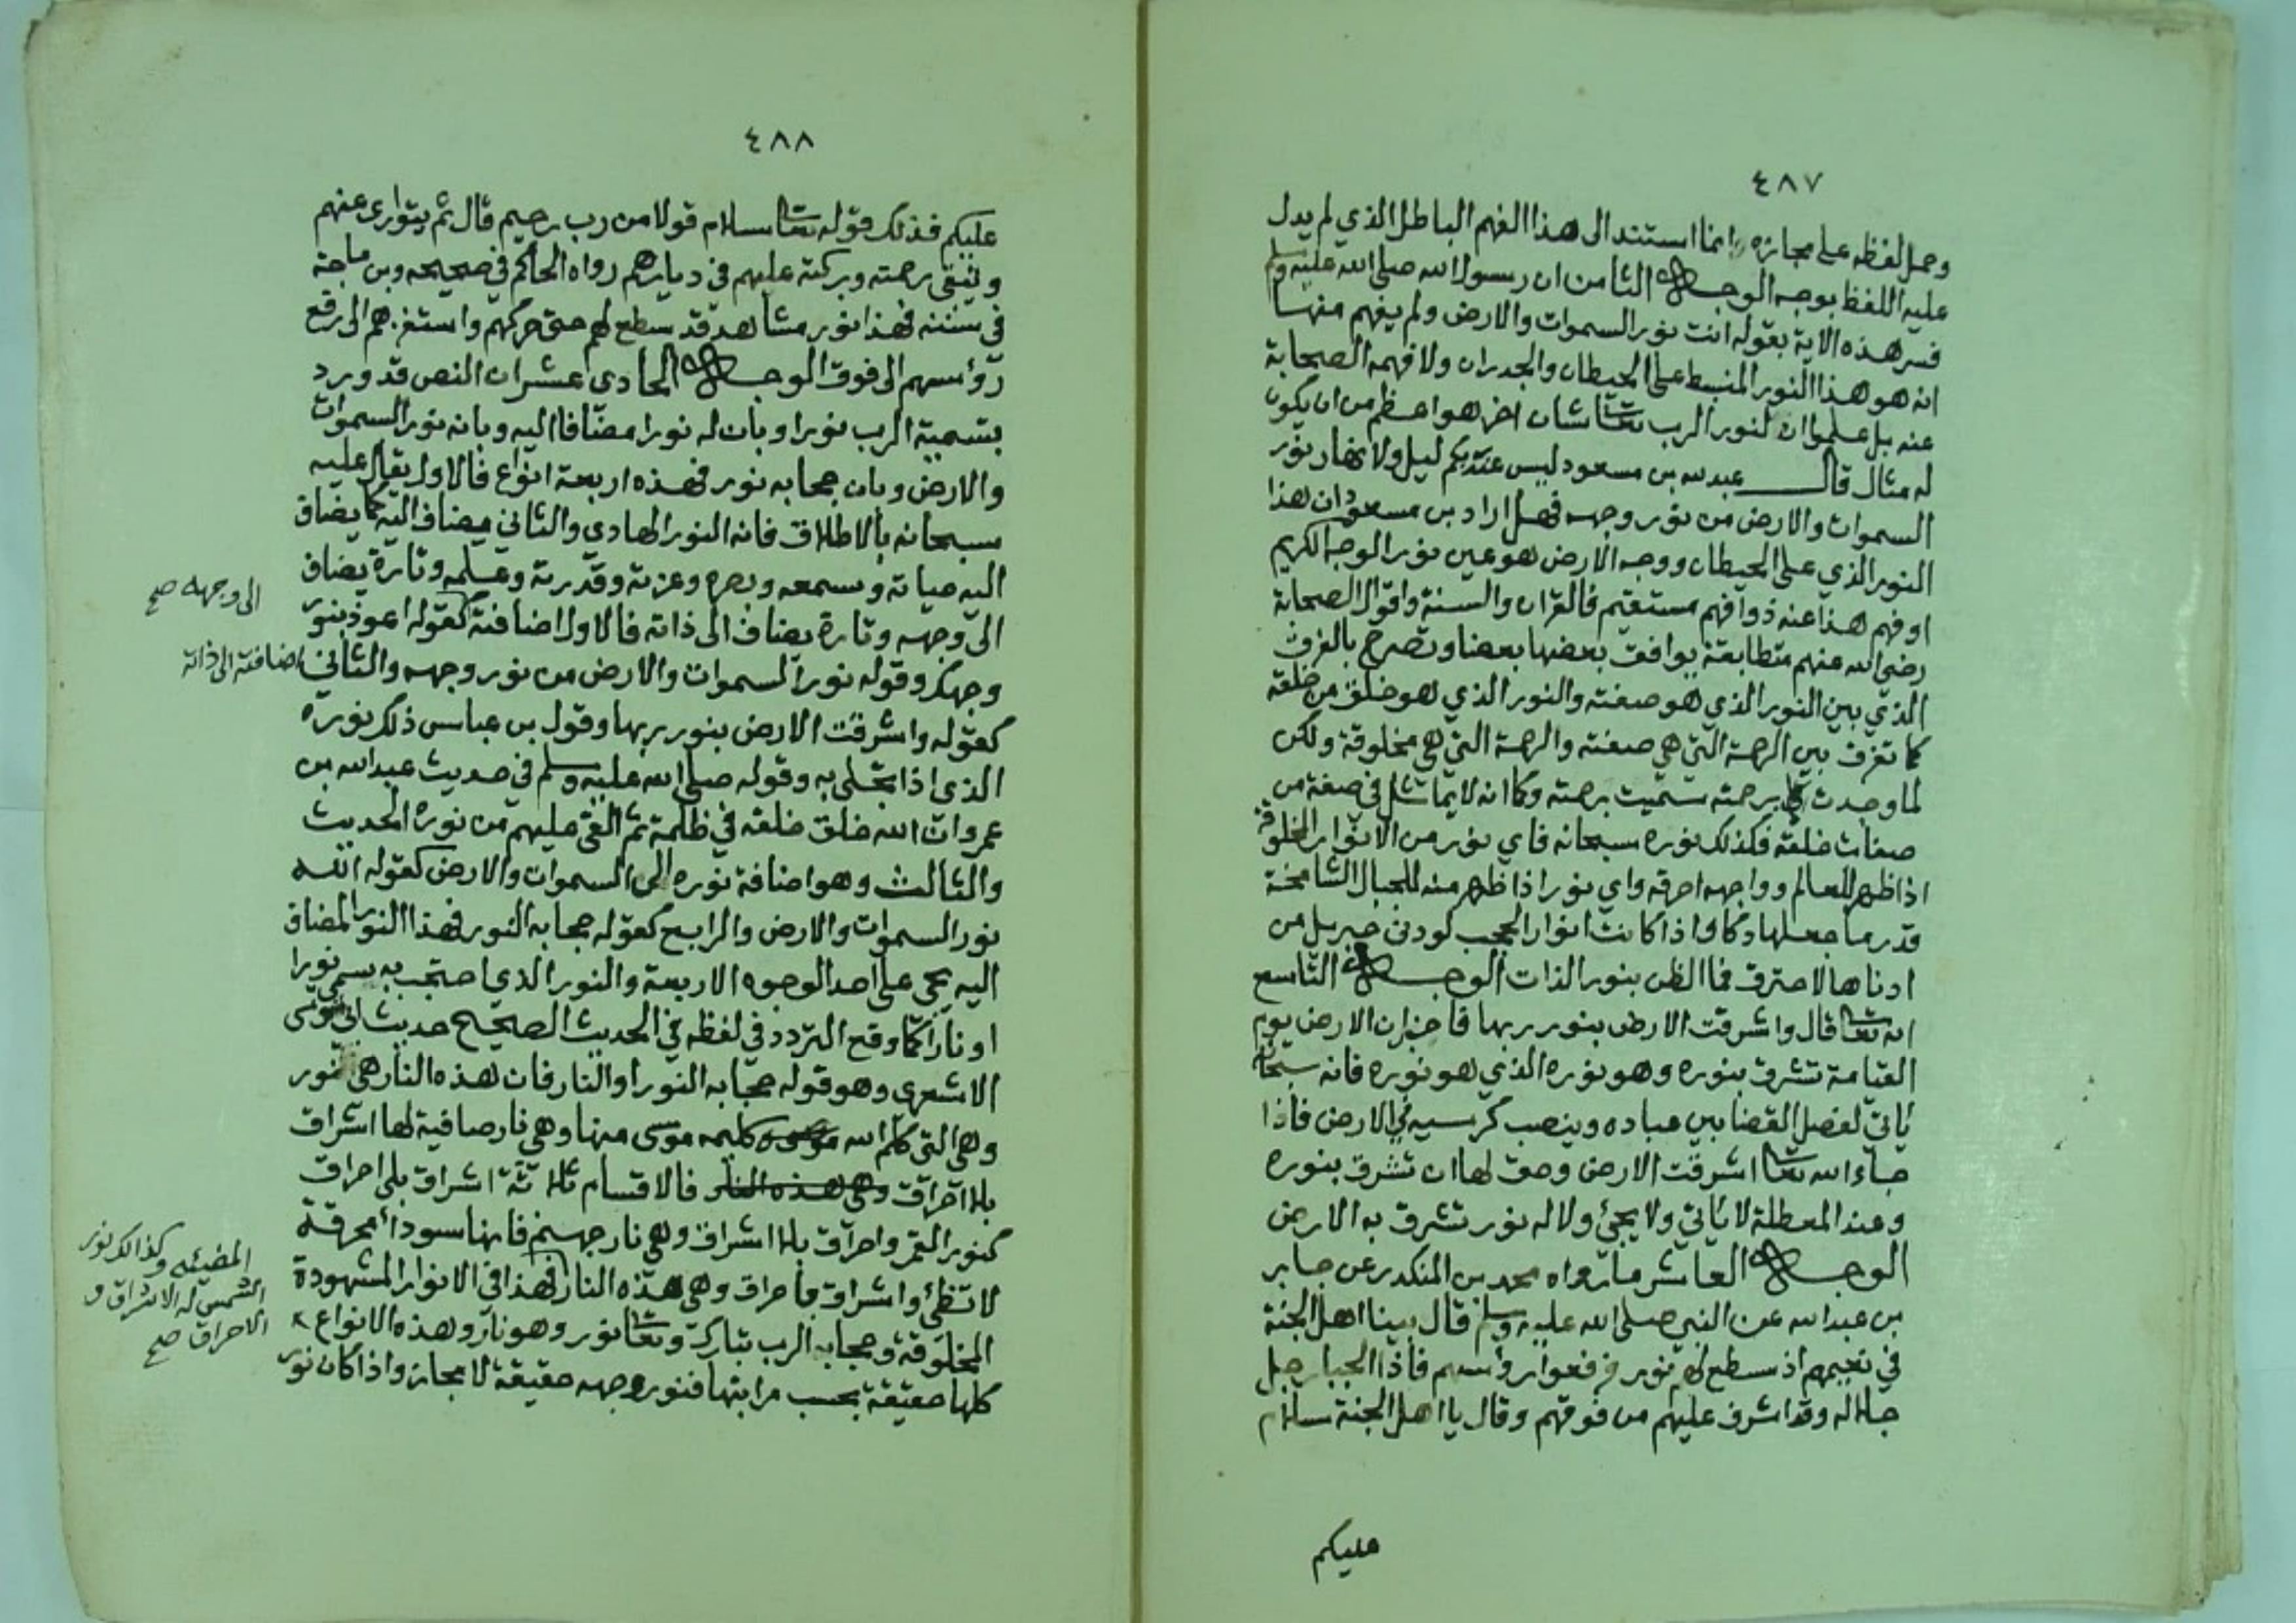 ٤٨٧
وحمل لفظه على مجازه وانما استند الى هذا الفهم الباطل الذي لم يدل
عليه اللفظ بوجه الوجه الثامن ان رسول الله صلى الله عليه وسلم
فسر هذه الاية بقوله انت نور السموات والارض ولم يفهم منها
انه هو هذا النور المنبسط على الحيطان والجدران ولا فهمه الصحابة
عنه بل علموا ان لنور الرب تعالى شان اخر هو اعظم من ان يكون
له مثال قال عبد الله بن مسعود ليس عند ربكم ليل ولا نهار نور
السموات والارض من نور وجهه فهل اراد بن مسعود ان هذا
النور الذي على الحيطان ووجه الارض هو عين نور الوجه الكريم
او فهم هذا عنه ذو افهم مستقيم فالقران والسنة واقوال الصحابة
رضي الله عنهم متطابقة يوافق بعضها بعضا وتصرح بالفرق
الذي بين النور الذي هو صفته والنور الذي هو خلق من خلقه
كما تفرق بين الرحمة التي هي صفته والرحمة التي هي مخلوقة ولكن
لما وجدت برحمته سميت برحمته وكما انه لا يماثل في صفة من
صفات خلقه فكذلك نوره سبحانه فاي نور من الانوار المخلوقة
اذا ظهر للعالم وواجهه احرقه واي نور اذا ظهر منه للجبال الشامخة
قدر ما جعلها دكا واذا كانت انوار الحجب لو دنى جبريل من
ادناها لاحترق فما الظن بنور الذات الوجه التاسع
انه تعالى قال واشرقت الارض بنور ربها فاخبر ان الارض يوم
القيامة تشرق بنوره وهو نوره الذي هو نوره فانه سبحانه
ياتي لفصل القضا بين عباده وينصب كرسيه في الارض فاذا
جاء الله تعالى اشرقت الارض وحق لها ان تشرق بنوره
وعند المعطلة لا ياتي ولا يجئ ولا له نور تشرق به الارض
الوجه العاشر ما رواه محمد بن المنكدر عن جابر
بن عبد الله عن النبي صلى الله عليه وسلم قال بينا اهل الجنة
في نعيمهم اذ سطع لهم نور فرفعوا رؤسهم فاذا الجبار جل
جلاله وقد اشرف عليهم من فوقهم وقال يا اهل الجنة سلام
عليكم
٤٨٨
عليكم فذلك قوله تعالى سلام قولا من رب رحيم قال ثم يتوارى عنهم
وتبقى رحمته وبركته عليهم في ديارهم رواه الحاكم في صحيحه وبن ماجة
في سننه فهذا نور مشاهد قد سطع لهم حتى حركهم واستفزهم الى رفع
رؤسهم الى فوق الوجه الحادى عشر ان النص قد ورد
بتسمية الرب نورا وبان له نورا مضافا اليه وبانه نور السموات
والارض وبان حجابه نور فهذه اربعة انواع فالاول يقال عليه
سبحانه بالاطلاق فانه النور الهادى والثاني يضاف اليه كما يضاف
اليه حياته وسمعه وبصره وعزته وقدرته وعلمه وتارة يضاف
الى وجهه وتارة يضاف الى ذاته فالاول اضافته كقوله اعوذ بنور
الى وجهه صح
وجهك وقوله نور السموات والارض من نور وجهه والثاني
اضافته الى ذاته
كقوله واشرقت الارض بنور ربها وقول بن عباس ذلك نوره
الذي اذا تجلى به وقوله صلى الله عليه وسلم في حديث عبد الله بن
عمرو ان الله خلق خلقه في ظلمة ثم القى عليهم من نوره الحديث
والثالث وهو اضافة نوره الى السموات والارض كقوله الله
نور السموات والارض والرابع كقوله حجابه النور فهذا النور المضاف
اليه يجي على احد الوجوه الاربعة والنور الذي احتجب به سمي نورا
او نارا كما وقع التردد في لفظه في الحديث الصحيح حديث ابي موسى
الاشعري وهو قوله حجابه النور او النار فان هذه النار هي نور
وهي التي كلم الله كليمه موسى منها وهي نار صافية لها اشراق
بلا احراق وهي هذه النار فالاقسام ثلاثة اشراق بلى احراق
كنور القمر واحراق بلا اشراق وهي نار جهنم فانها سوداء محرقة
لا تضئ واشراق باحراق وهي هذه النار فهذا في الانوار المشهودة
المضيئه وكذالك نور
الشمس له الاشراق و
الاحراق صح
المخلوقة وحجابه الرب تبارك وتعالى نور وهو نار وهذه الانواع
كلها حقيقة بحسب مراتبها فنور وجهه حقيقة لا مجاز واذا كان نور